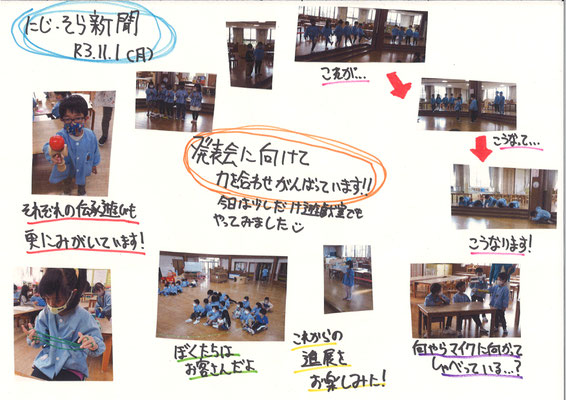 にじ・そら新聞
R3.11.1(月)
これが...
こうなって...
こうなります!
発表会に向けて
力を合わせがんばっています!!
今日は少しだけ遊戯室でも
やってみました
それぞれの伝承遊びも
更にみがいています!
ぼくたちは
お客さんだよ
これからの
進展を
お楽しみに!
何やらマイクに向かって
しゃべっている...?